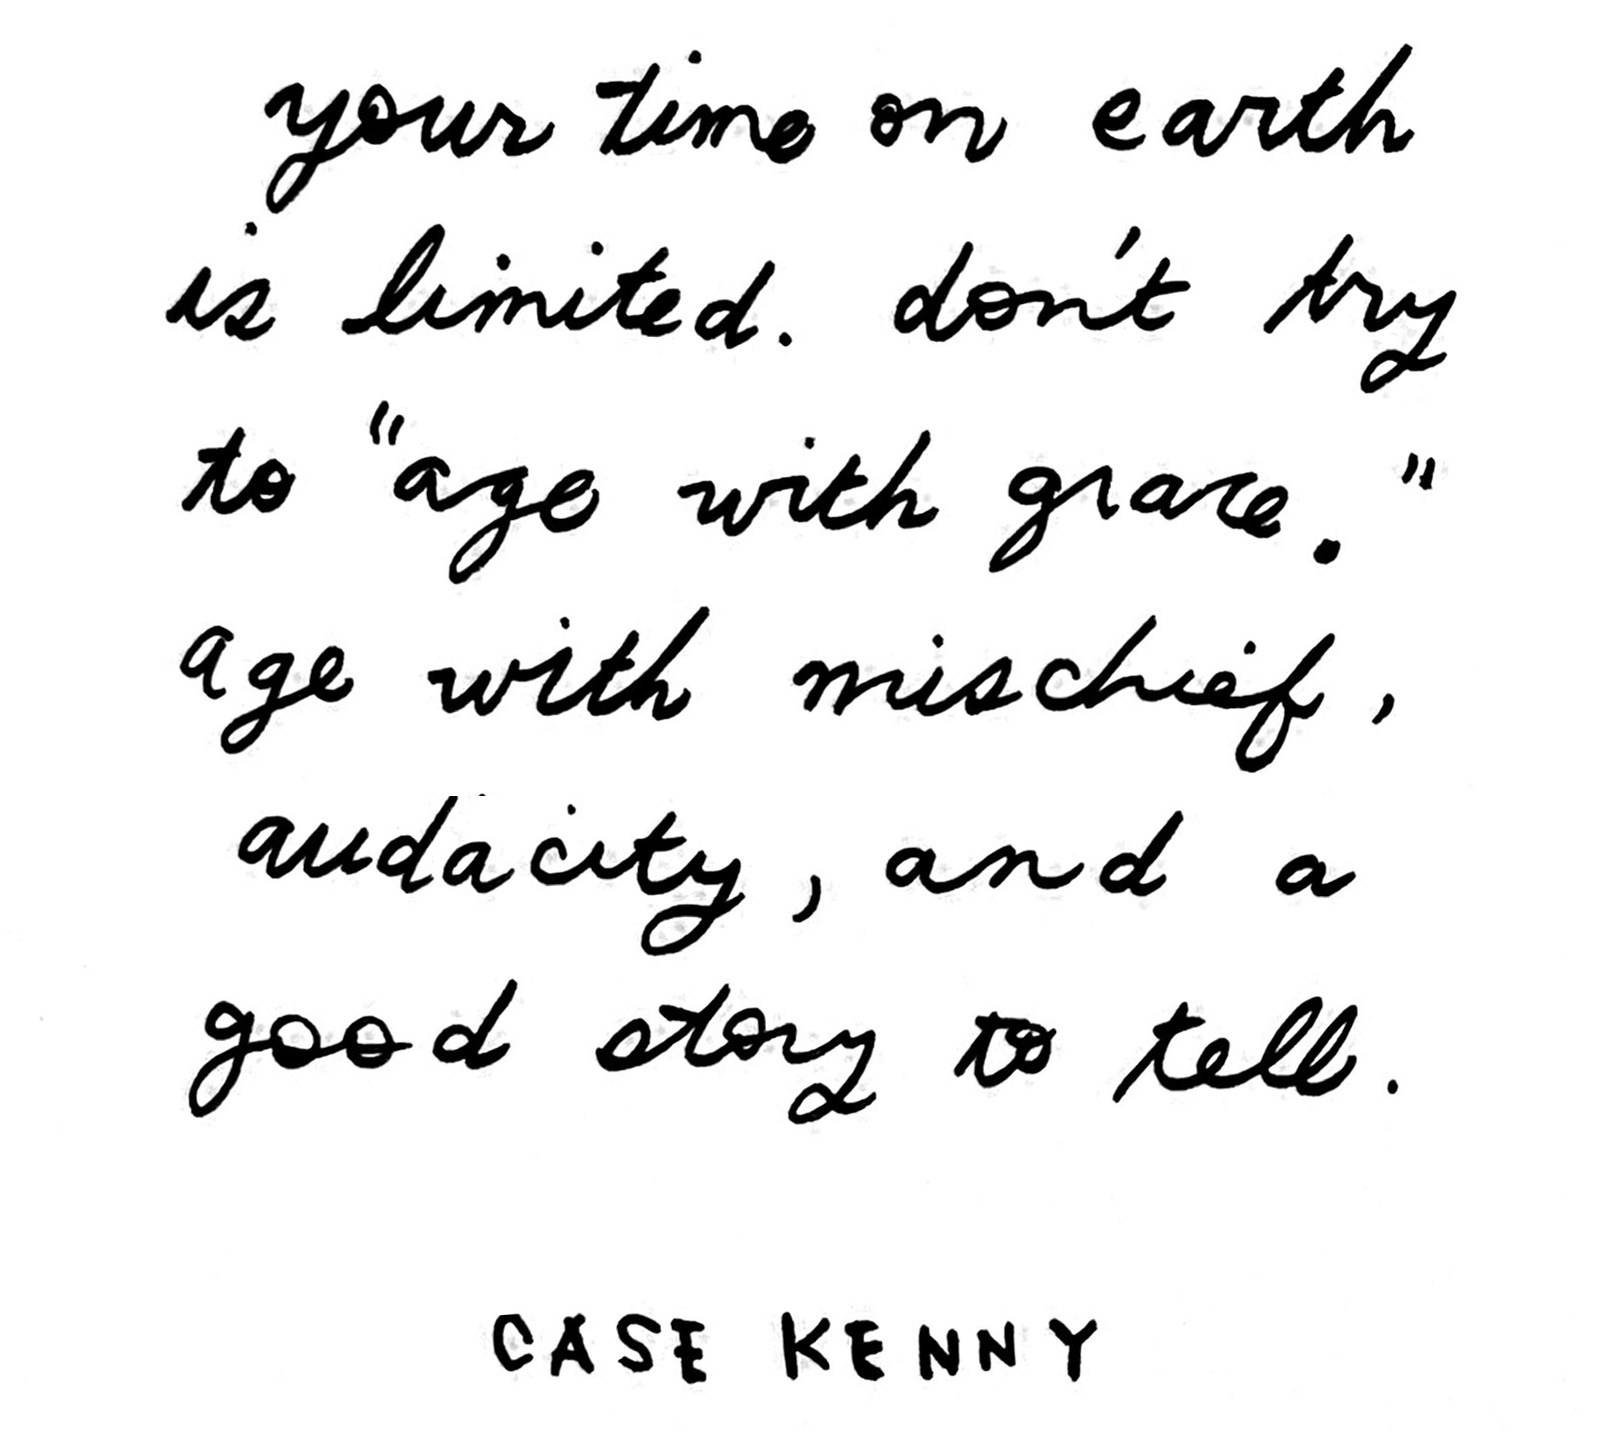 your time on earth
is limited. don't try
to "age with grace."
age with mischief,
audacity, and a
good story to tell.
CASE KENNY